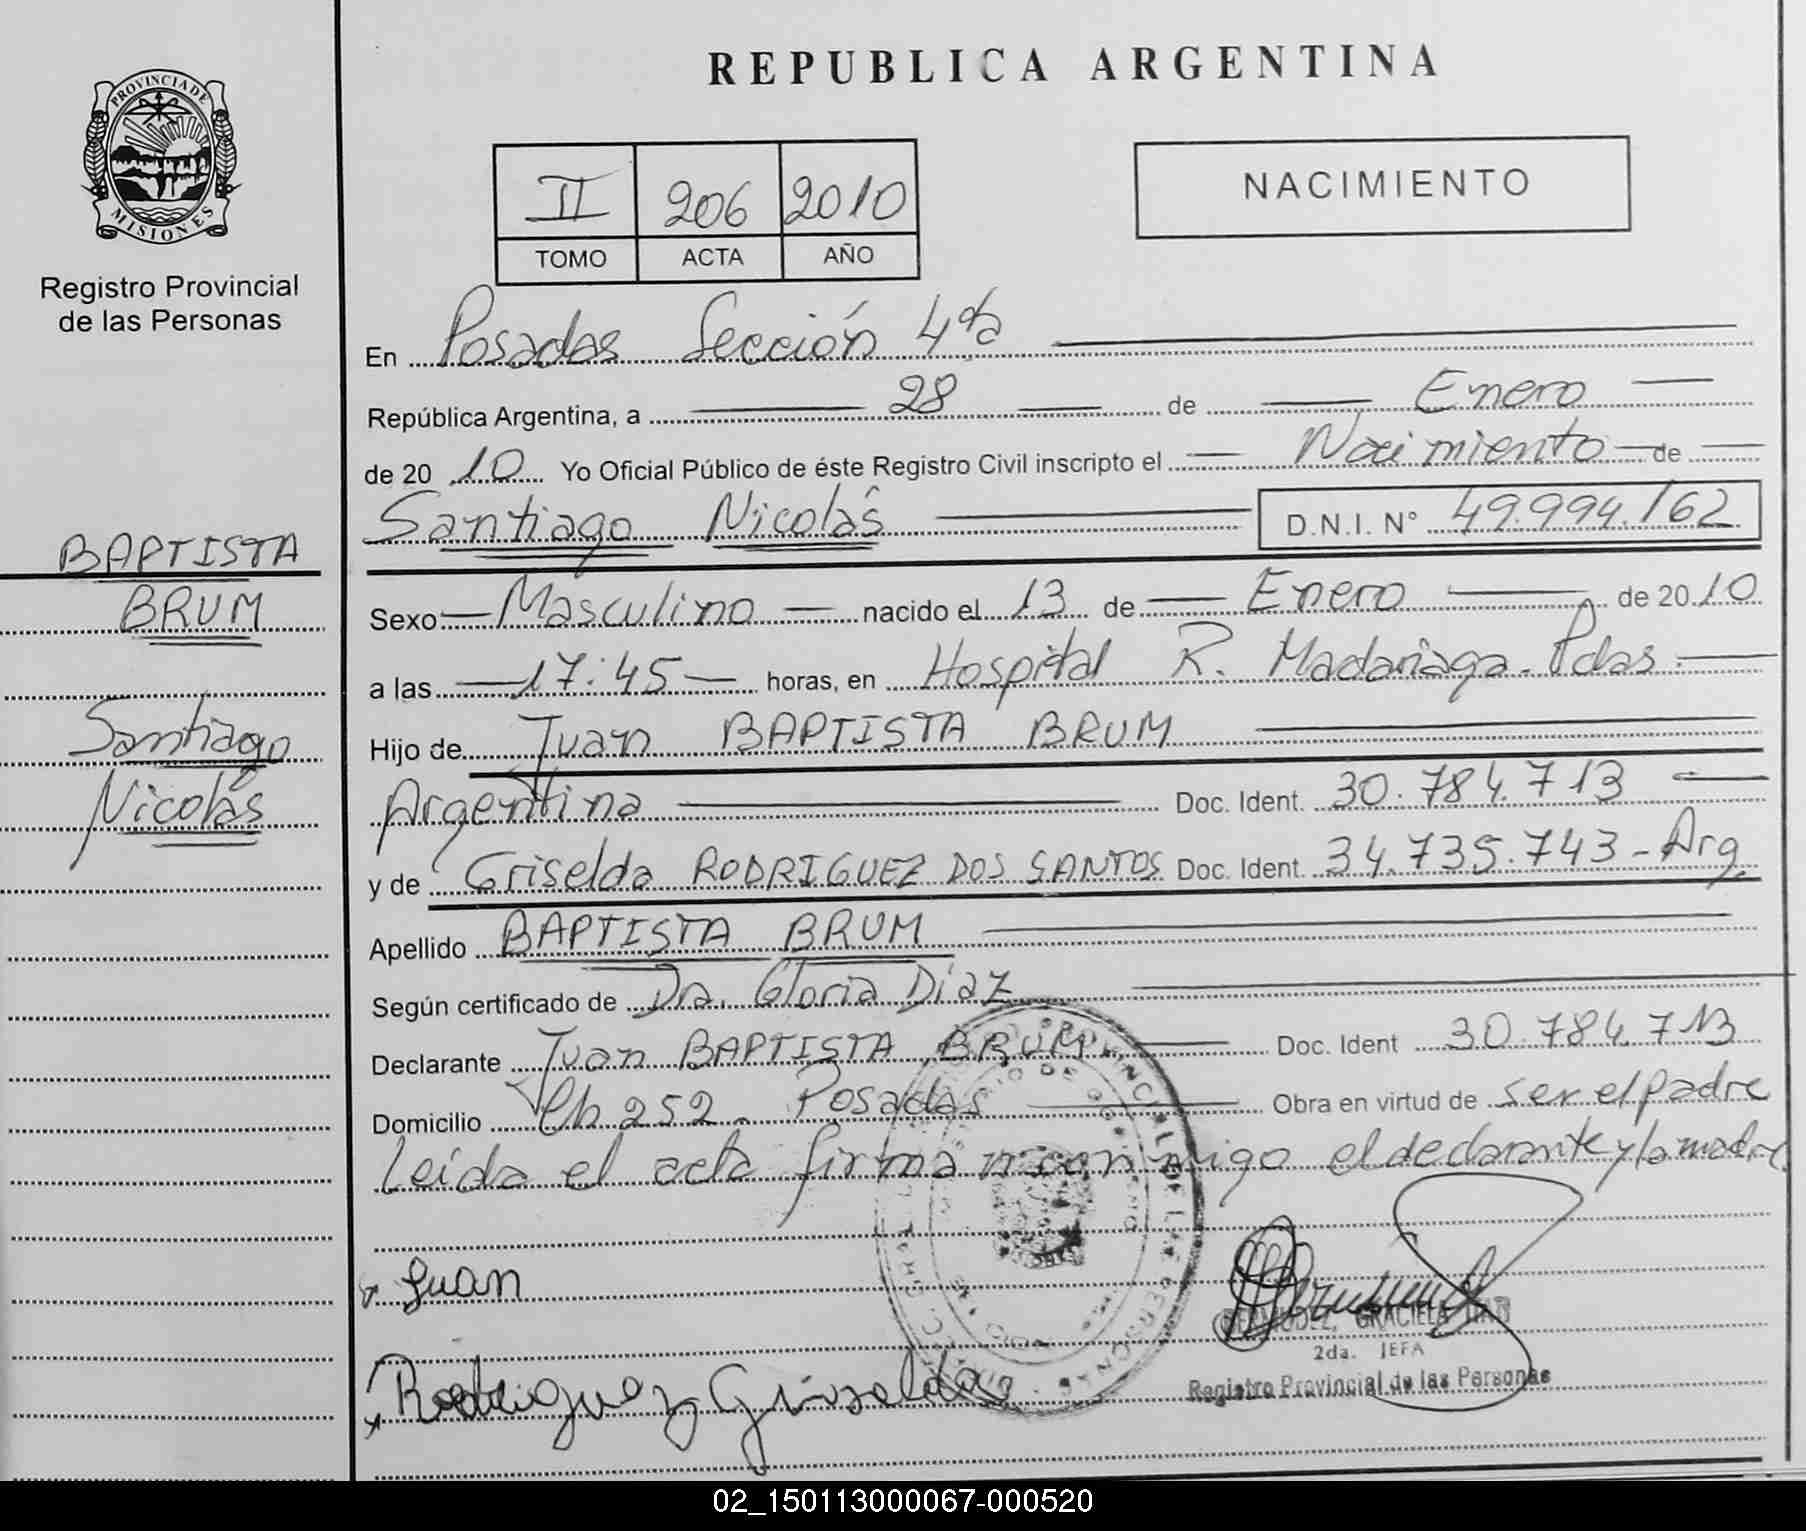 REPUBLICA ARGENTINA
PROVINCIA DE
MISIONES
Registro Provincial
de las Personas
II 206 2010
TOMO ACTA AÑO
NACIMIENTO
En Posadas Sección 4ta
República Argentina, a 28 de Enero
de 20 10 Yo Oficial Público de éste Registro Civil inscripto el Nacimiento de
Santiago Nicolás D.N.I. N° 49.994.162
BAPTISTA
BRUM
Santiago
Nicolás
Sexo Masculino nacido el 13 de Enero de 20 10
a las 17:45 horas, en Hospital R. Madariaga - Pdas.
Hijo de Juan BAPTISTA BRUM
Argentina Doc. Ident. 30.784.713
y de Griselda RODRIGUEZ DOS SANTOS Doc. Ident. 34.735.743 - Arg.
Apellido BAPTISTA BRUM
Según certificado de Dra. Gloria Díaz
Declarante Juan BAPTISTA BRUM Doc. Ident 30.784.713
Domicilio Ch 252. Posadas Obra en virtud de ser el padre
Leída el acta firman conmigo el declarante y la madre.
Juan
Rodriguez Griselda
BERMUDEZ, GRACIELA
2da. JEFA
Registro Provincial de las Personas
02_150113000067-000520